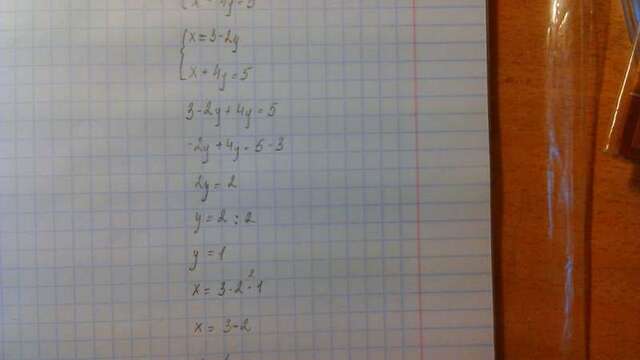 {x = 3-2y
x + 4y = 5
3-2y+4y=5
-2y+4y=5-3
2y=2
y=2:2
y=1
x=3-2·1
x=3-2